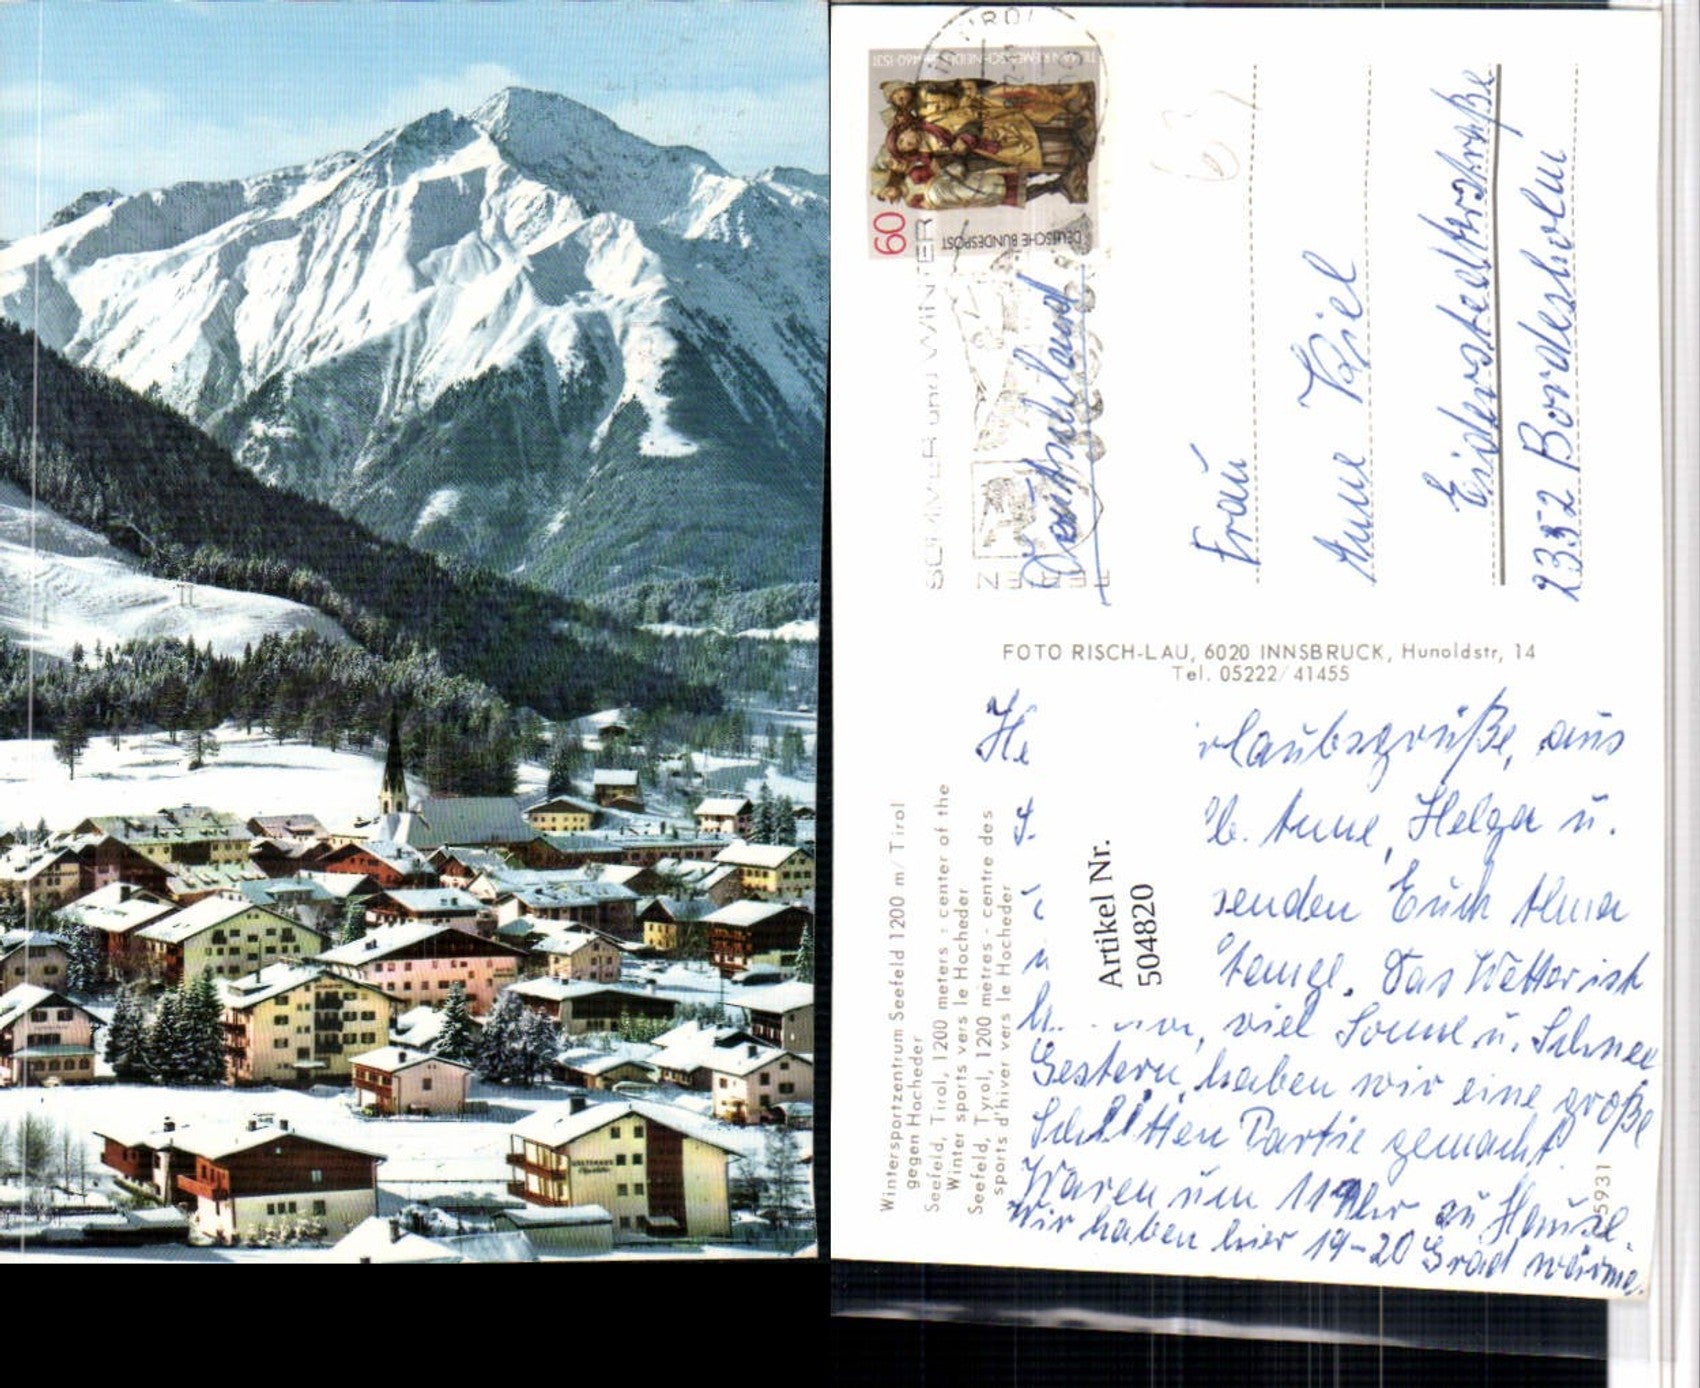 GÄSTEHAUS
TILMAN RIEMENSCHNEIDER 1460-1531
60
DEUTSCHE BUNDESPOST
in TIROL
SOMMER und WINTER
Deutschland
Frau
Anne Kiel
Eiderstedterstraße
2352 Bordesholm
FOTO RISCH-LAU, 6020 INNSBRUCK, Hunoldstr, 14
Tel. 05222/41455
Wintersportzentrum Seefeld 1200 m/Tirol
gegen Hocheder
Seefeld, Tirol, 1200 meters : center of the
Winter sports vers le Hocheder
Seefeld, Tyrol, 1200 mètres - centre des
sports d'hiver vers le Hocheder
5931
Artikel Nr.
504820
He rlaubsgrüße, aus
S. lb. Anne, Helga u.
senden Erich Alma
Das Wetter ist
viel Sonne u. Schnee
Gestern haben wir eine große
Schlitten Partie gemacht.
Waren um 11 Uhr zu Hause.
Wir haben hier 19-20 Grad wärme.